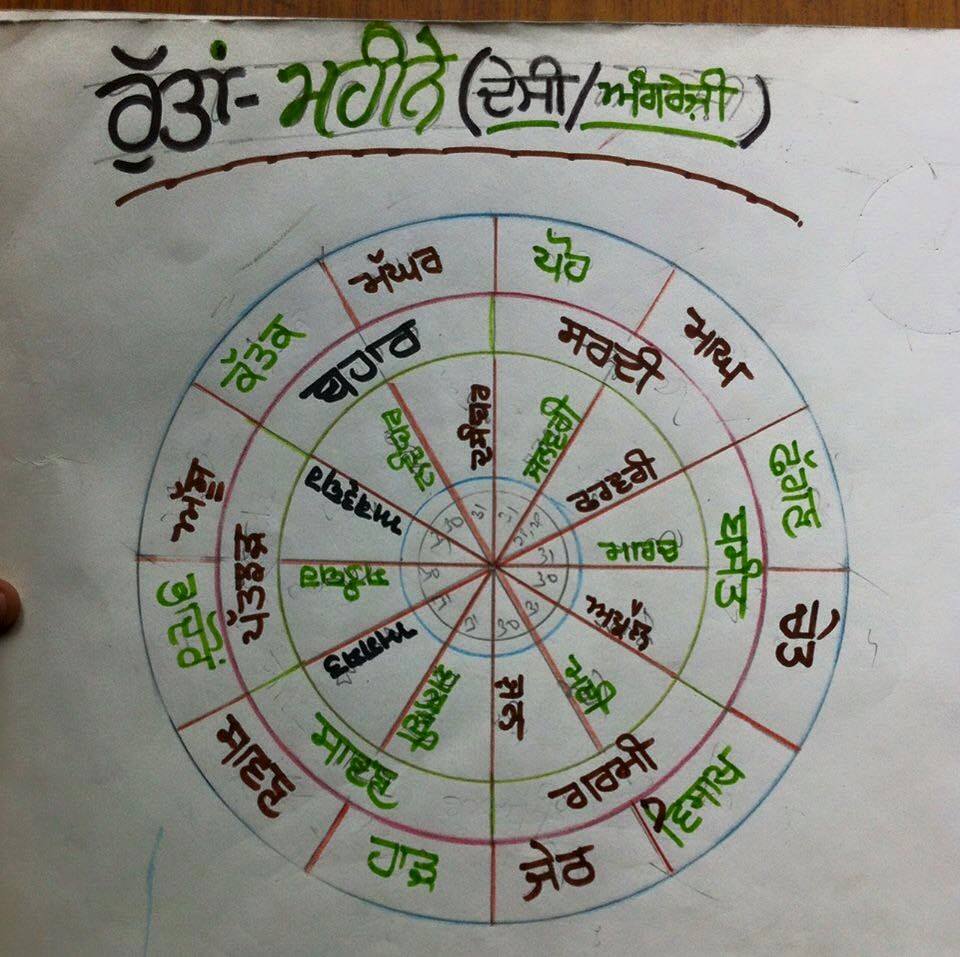 ਰੁੱਤਾਂ - ਮਹੀਨੇ (ਦੇਸੀ/ਅੰਗਰੇਜ਼ੀ)
ਪੋਹ
ਮਾਘ
ਫੱਗਣ
ਚੇਤ
ਵਿਸਾਖ
ਜੇਠ
ਹਾੜ
ਸਾਵਣ
ਭਾਦੋਂ
ਅੱਸੂ
ਕੱਤਕ
ਮੱਘਰ
ਸਰਦੀ
ਬਸੰਤ
ਗਰਮੀ
ਸਾਵਣ
ਪੱਤਝੜ
ਬਹਾਰ
ਜਨਵਰੀ
ਫਰਵਰੀ
ਮਾਰਚ
ਅਪ੍ਰੈਲ
ਮਈ
ਜੂਨ
ਜੁਲਾਈ
ਅਗਸਤ
ਸਤੰਬਰ
ਅਕਤੂਬਰ
ਨਵੰਬਰ
ਦਸੰਬਰ
31
30
31
30
31
30
31